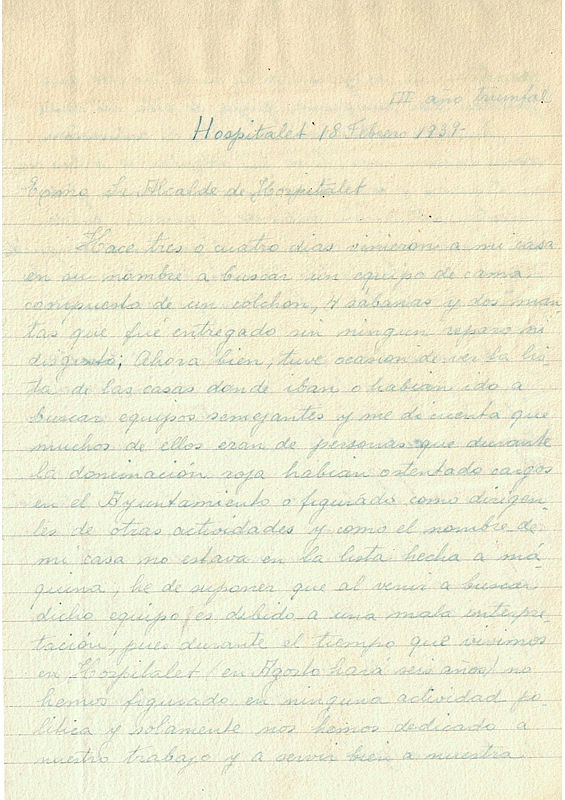 III año triunfal
Hospitalet 18 Febrero 1939-
Exmo Sr Alcalde de Hospitalet
Hace tres o cuatro dias vinieron a mi casa
en su nombre a buscar un equipo de cama
compuesta de un colchon, 4 sábanas y dos man
tas que fue entregado sin ningun reparo ni
disgusto; Ahora bien, tuve ocasion de ver la lis-
ta de las casas donde iban o habian ido a
buscar equipos semejantes y me di cuenta que
muchos de ellos eran de personas que durante
la dominación roja habian ostentado cargos
en el Ayuntamiento o figurado como dirigen-
tes de otras actividades y como el nombre de
mi casa no estava en la lista hecha a má-
quina, he de suponer que al venir a buscar
dicho equipo es debido a una mala interpre-
tación, pues durante el tiempo que vivimos
en Hospitalet (en Agosto hará seis años) no
hemos figurado en ninguna actividad po-
lítica y solamente nos hemos dedicado a
nuestro trabajo y a servir bien a nuestra